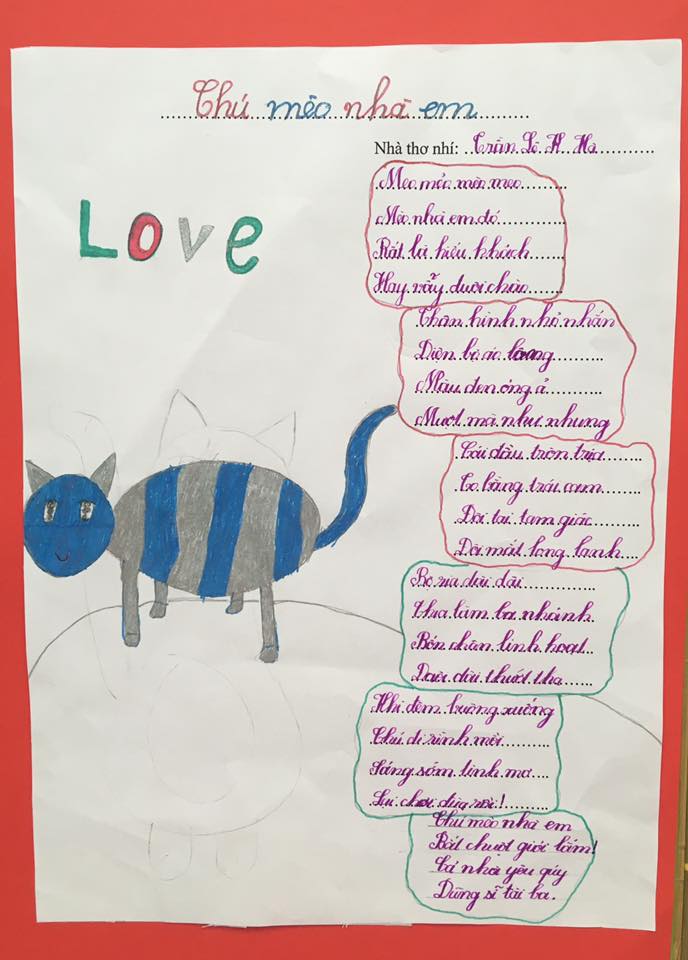 Chú mèo nhà em
Nhà thơ nhí: Trần Lê H Hà
Love
Meo mẻo mèo meo
Mèo nhà em đó
Rất là hiếu khách
Hay vẫy đuôi chào
Thân hình nhỏ nhắn
Diện bộ áo lông
Màu đen óng ả
Mượt mà như nhung
Cái đầu tròn trịa
To bằng trái cam
Đôi tai tam giác
Đôi mắt long lanh
Bộ ria dài dài
Chia làm ba nhánh
Bốn chân linh hoạt
Đuôi dài thướt tha
Khi đêm buông xuống
Chú đi rình mồi
Sáng sớm tinh mơ
Lại chơi đùa rồi!
Chú mèo nhà em
Bắt chuột giỏi lắm!
Cả nhà yêu quý
Dũng sĩ tài ba.